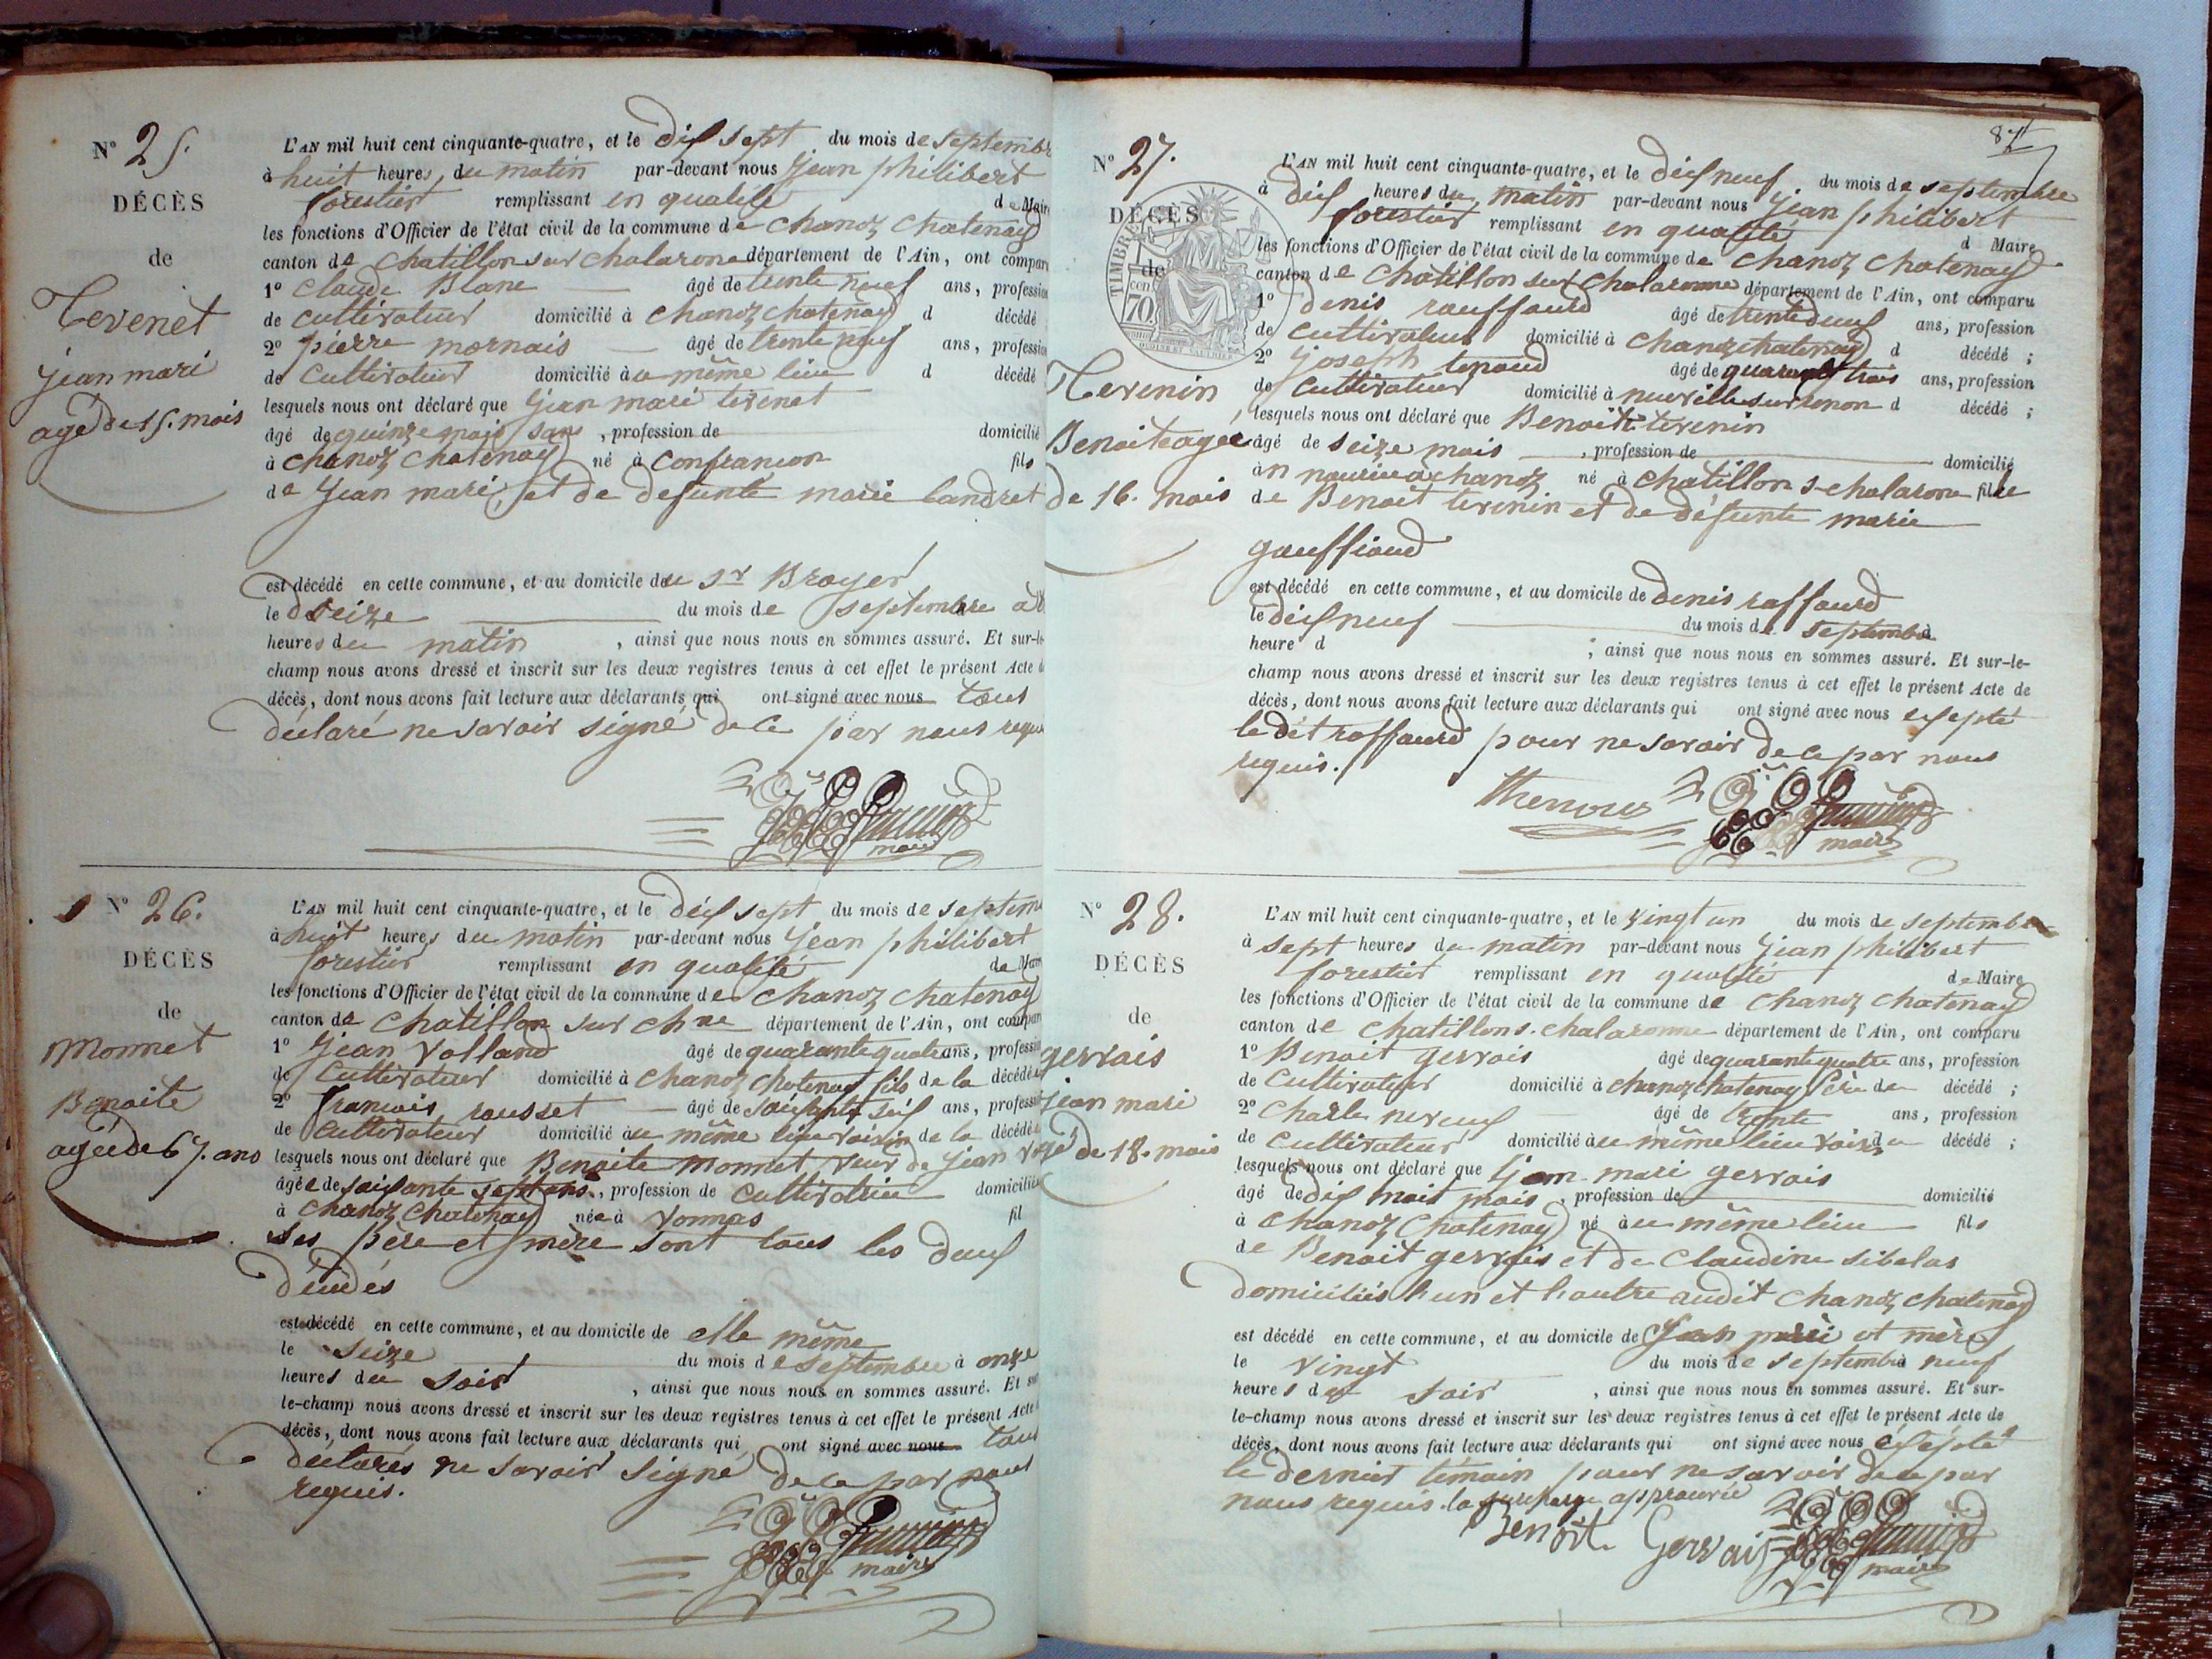 N° 25.
DÉCÈS
de
Tevenet
jean mari
agé de 15. mois
L'AN mil huit cent cinquante-quatre, et le dix sept du mois de septembre
à huit heures du matin par-devant nous jean philibert
forestier remplissant en qualité de Maire
les fonctions d'Officier de l'état civil de la commune de chanoz chatenay
canton de chatillon sur chalarone département de l'Ain, ont comparu
1° claude Blanc âgé de trente neuf ans, profession
de cultivateur domicilié à chanoz chatenay d décédé
2° pierre mornais âgé de trente neuf ans, profession
de cultivateur domicilié au même lieu d décédé
lesquels nous ont déclaré que jean mari tevenet
âgé de quinze mois sans, profession de domicilié
à chanoz chatenay né à confrançon fils
de jean mari et de defunte marie landret
est décédé en cette commune, et au domicile du sr Broyer
le seize du mois de septembre à
heures du matin, ainsi que nous nous en sommes assuré. Et sur-le-
champ nous avons dressé et inscrit sur les deux registres tenus à cet effet le présent Acte de
décès, dont nous avons fait lecture aux déclarants qui ont signé avec nous tous
déclaré ne savoir signé de ce par nous requis
maire
N° 26.
DÉCÈS
de
Monnet
Benoite
agée de 67. ans
L'AN mil huit cent cinquante-quatre, et le dix sept du mois de septembre
à huit heures du matin par-devant nous jean philibert
forestier remplissant en qualité de Maire
les fonctions d'Officier de l'état civil de la commune de chanoz chatenay
canton de chatillon sur chne département de l'Ain, ont comparu
1° jean Volland âgé de quarante quatre ans, profession
de cultivateur domicilié à chanoz chatenay fils de la décédée
2° francois rousset âgé de soixante six ans, profession
de cultivateur domicilié au même lieu voisin de la décédée
lesquels nous ont déclaré que Benoite monnet veuve de jean
âgée de soixante sept ans, profession de cultivatrice domiciliée
à chanoz chatenay née à vonnas fil
ses père et mère sont tous les deux
décédés
est décédé en cette commune, et au domicile de elle même
le seize du mois de septembre à onze
heures du soir, ainsi que nous nous en sommes assuré. Et sur-
le-champ nous avons dressé et inscrit sur les deux registres tenus à cet effet le présent Acte de
décès, dont nous avons fait lecture aux déclarants qui ont signé avec nous tous
déclarés ne savoir signé de ce par nous
requis.
maire
87
N° 27.
DÉCÈS
de
TIMBRE
70
Tevenin
Benoite agée
de 16. mois
L'AN mil huit cent cinquante-quatre, et le dix neuf du mois de septembre
à dix heures du matin par-devant nous jean philibert
forestier remplissant en qualité d Maire
les fonctions d'Officier de l'état civil de la commune de chanoz chatenay
canton de chatillon sur chalaronne département de l'Ain, ont comparu
1° denis rauffaurd âgé de trente deux ans, profession
de cultivateur domicilié à chanoz chatenay d décédé;
2° joseph tenoud âgé de quarante trois ans, profession
de cultivateur domicilié à neuville sur renon d décédé;
lesquels nous ont déclaré que Benoite tevenin
âgé de seize mois, profession de domicilié
à chanoz né à chatillon s chalarone fille
de Benoit tevenin et de défunte marie
gauffiaud
est décédé en cette commune, et au domicile de denis raffaurd
le dix neuf du mois de septembre à
heure d ; ainsi que nous nous en sommes assuré. Et sur-le-
champ nous avons dressé et inscrit sur les deux registres tenus à cet effet le présent Acte de
décès, dont nous avons fait lecture aux déclarants qui ont signé avec nous exepté
le dit raffaurd pour ne savoir de ce par nous
requis.
maire
N° 28.
DÉCÈS
de
gervais
jean mari
agé de 18. mois
L'AN mil huit cent cinquante-quatre, et le vingt un du mois de septembre
à sept heures du matin par-devant nous jean philibert
forestier remplissant en qualité de Maire
les fonctions d'Officier de l'état civil de la commune de chanoz chatenay
canton de chatillon s. chalaronne département de l'Ain, ont comparu
1° Benoit gervais âgé de quarante quatre ans, profession
de cultivateur domicilié à chanoz chatenay père du décédé;
2° charle neveux âgé de trente ans, profession
de cultivateur domicilié au même lieu voisin du décédé;
lesquels nous ont déclaré que jean mari gervais
âgé de dix huit mois, profession de domicilié
à chanoz chatenay né au même lieu fils
de Benoit gervais et de claudine sibelas
domiciliés l'un et l'autre audit chanoz chatenay
est décédé en cette commune, et au domicile de père et mère
le vingt du mois de septembre à neuf
heures du soir, ainsi que nous nous en sommes assuré. Et sur-
le-champ nous avons dressé et inscrit sur les deux registres tenus à cet effet le présent Acte de
décès, dont nous avons fait lecture aux déclarants qui ont signé avec nous exepté
le dernier témoin pour ne savoir de ce par
nous requis. la surcharge approuvée
Benoit Gervais
maire